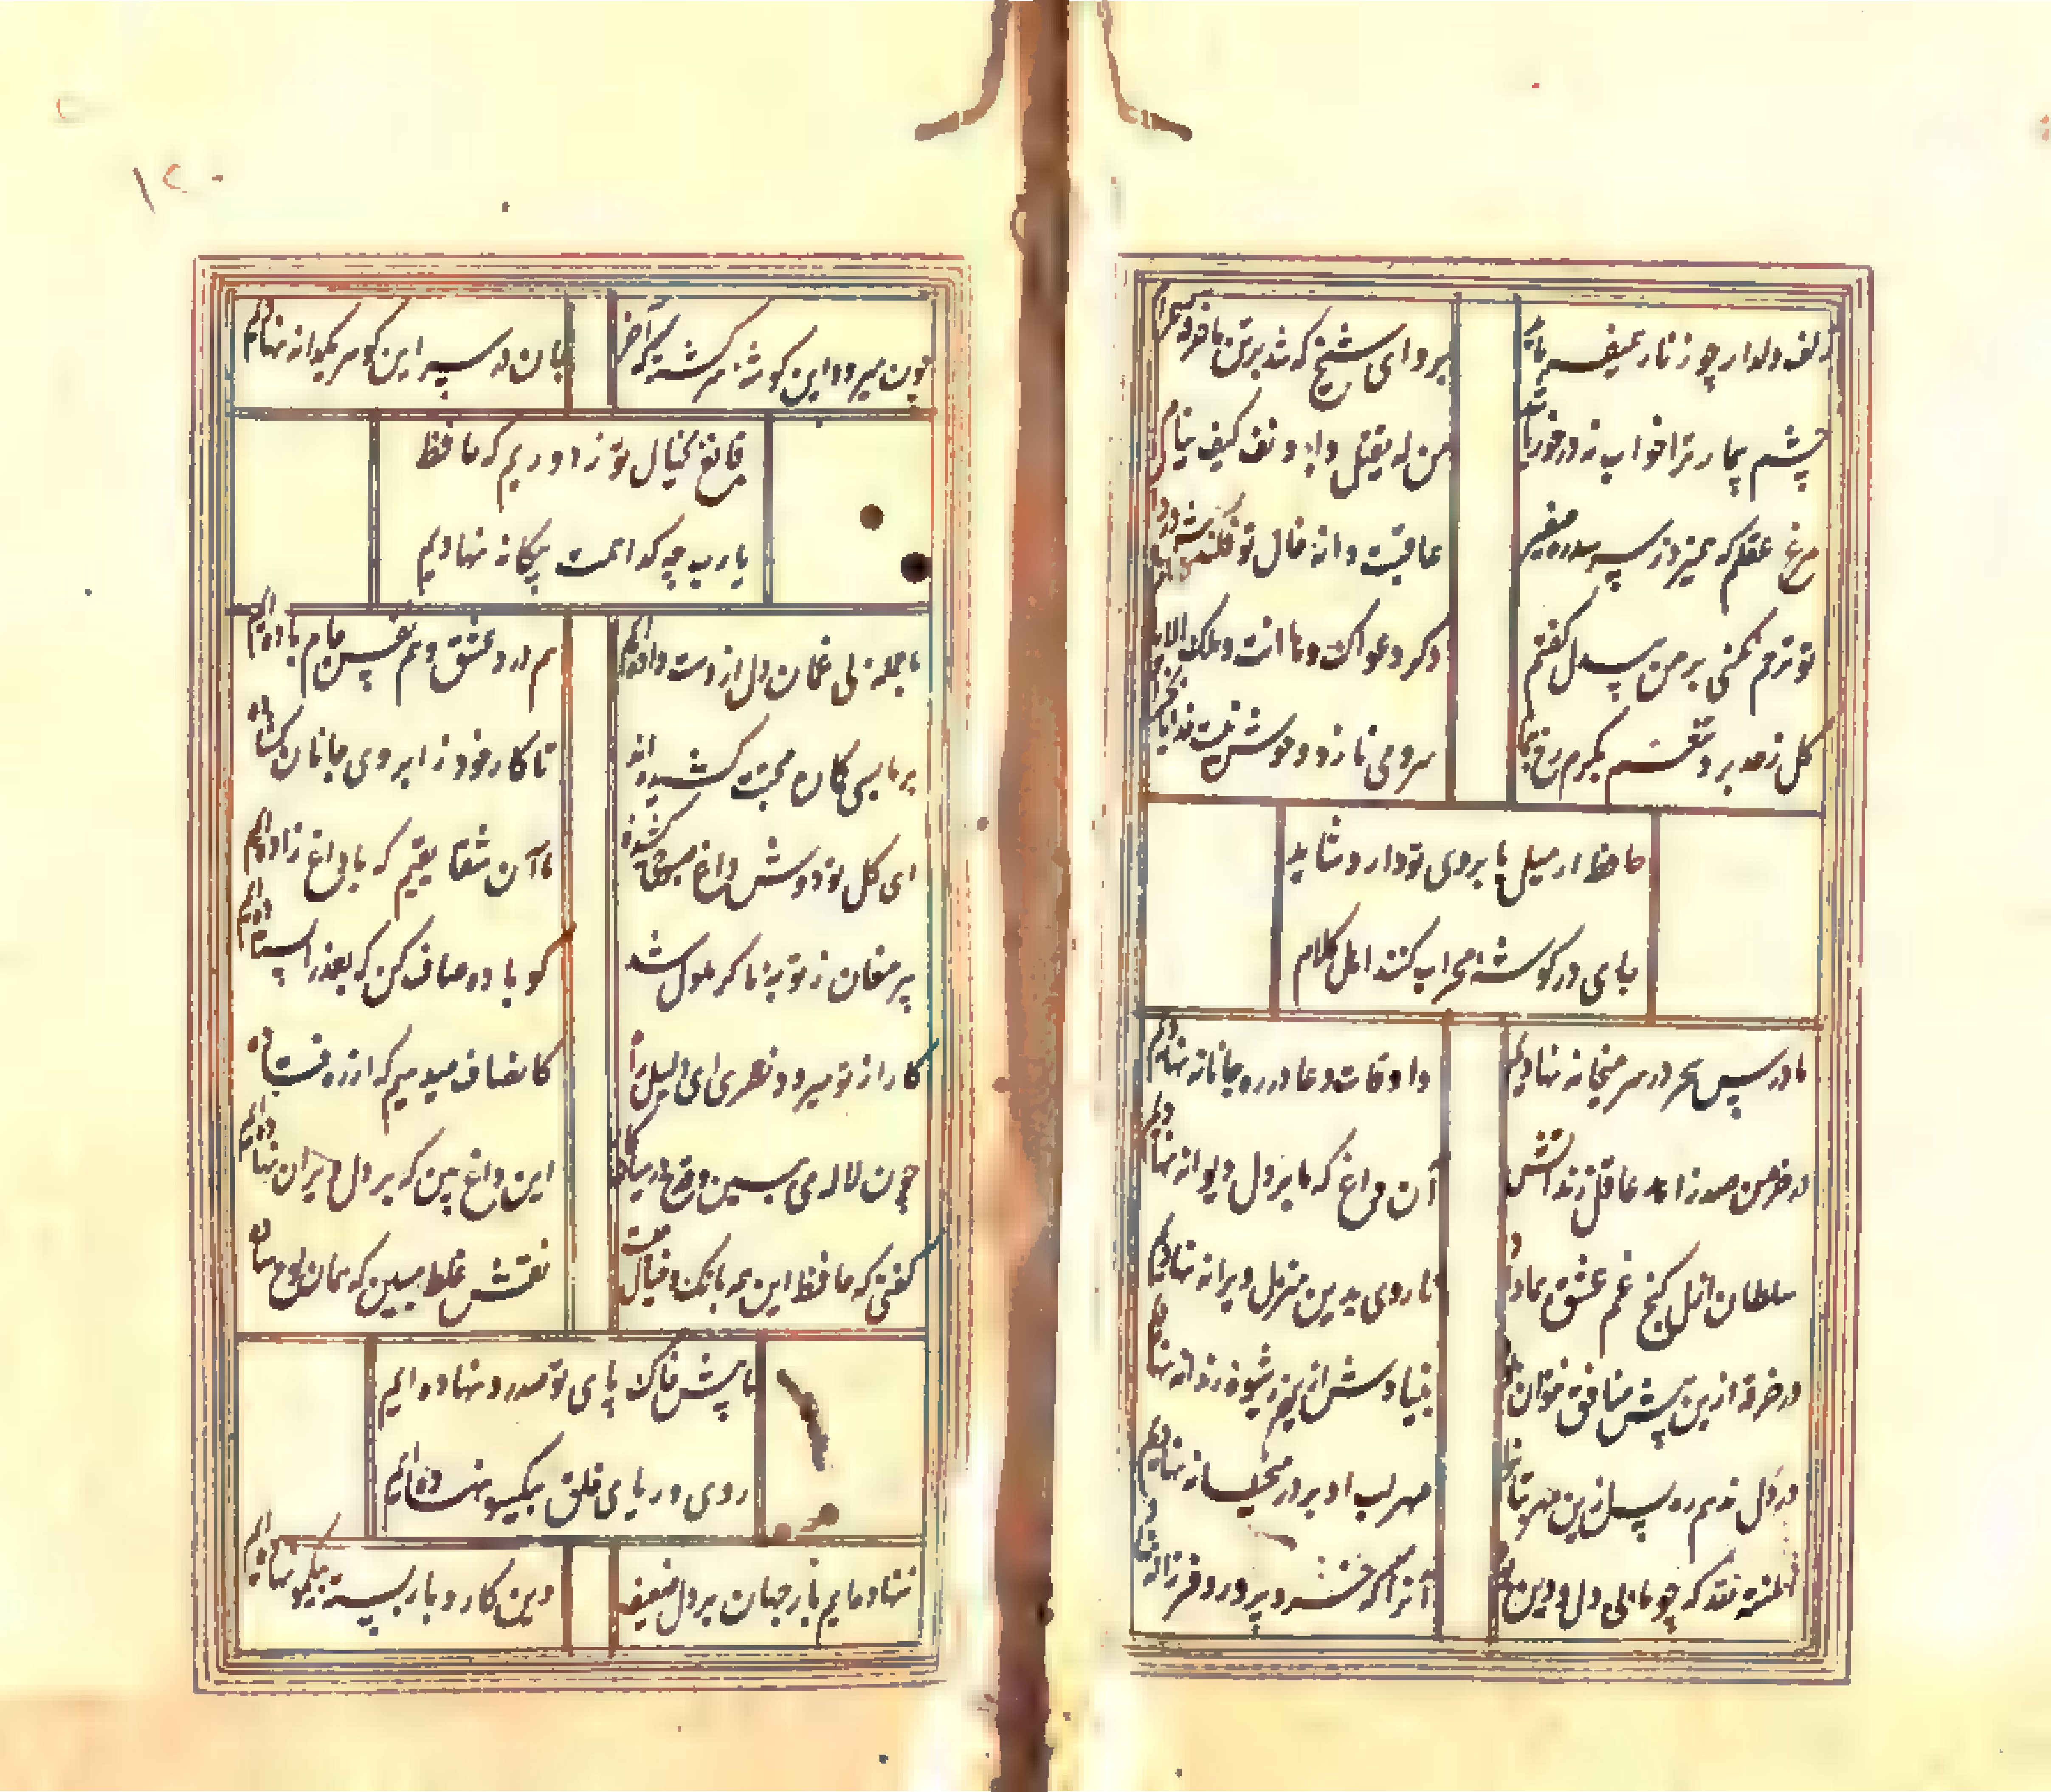 زلف دلدار چو زنار همیفرماید
برو ای شیخ که شد بر تن ما خرقه حرام
چشم بیمار ترا خواب نه در خور باشد
من له یقتل داء دنف کیف ینام
مرغ عقلم که همیزد ز سر سدره صفیر
عاقبت دانه خال تو فکندش در دام
تو ترحم نکنی بر من بیدل گفتم
ذاک دعوای و ها انت و تلک الایام
گل ز حد برد تنعم بکرم رخ بنما
سرو می نازد و خوش نیست خدا را بخرام
حافظ ار میل بابروی تو دارد شاید
جای در گوشه محراب کنند اهل کلام
ما درس سحر در سر میخانه نهادیم
و اوقات دعا در ره جانانه نهادیم
در خرمن صد زاهد عاقل زند آتش
آن داغ که ما بر دل دیوانه نهادیم
سلطان ازل گنج غم عشق بما داد
تا روی بدین منزل ویرانه نهادیم
در خرقه ازین بیش منافق نتوان بود
بنیادش ازین شیوه رندانه نهادیم
در دل ندهم ره پس ازین مهر بتان را
مهر لب او بر در میخانه نهادیم
المنة لله که چو ما بی دل و دین بود
آنرا که خرد پرور و فرزانه
چون میرود این کشتی سرگشته که آخر
جان در سر این گوهر یکدانه نهادیم
قانع بخیال تو ز دوریم که حافظ
یارب چه گدا همت بیگانه نهادیم
ما بی غمان دل از دست داده‌ایم
هم درد عشق و هم نفس جام باده‌ایم
بر ما بسی کمان محبت کشیده‌اند
تا کار خود ز ابروی جانان گشاده
ای گل تو دوش داغ صبوحی کشیده
ما آن شقایقیم که با داغ زاده‌ایم
پیر مغان ز توبه ما گر ملول شد
گو باده صاف کن که بعذر ایستاده‌ایم
کار از تو میرود نظری ای دلیل راه
کانصاف میدهیم که از ره فتاده
چون لاله می مبین و قدح در میان
این داغ بین که بر دل ویران نهاده‌ایم
گفتی که حافظ این همه بانگ و خیال چیست
نقش غلط مبین که همان لوح ساده
ما پیش خاک پای تو صد رو نهاده‌ایم
روی و ریای خلق بیکسو نهاده‌ایم
ننهاده‌ایم بار جهان بر دل ضعیف
وین کار و بار بسته بیکمو نهاده‌ایم